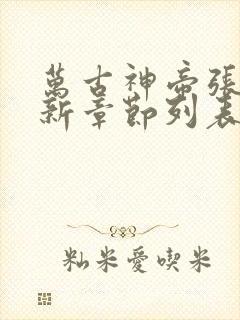 萬古神帝張
新章節列表
籼米愛喫米